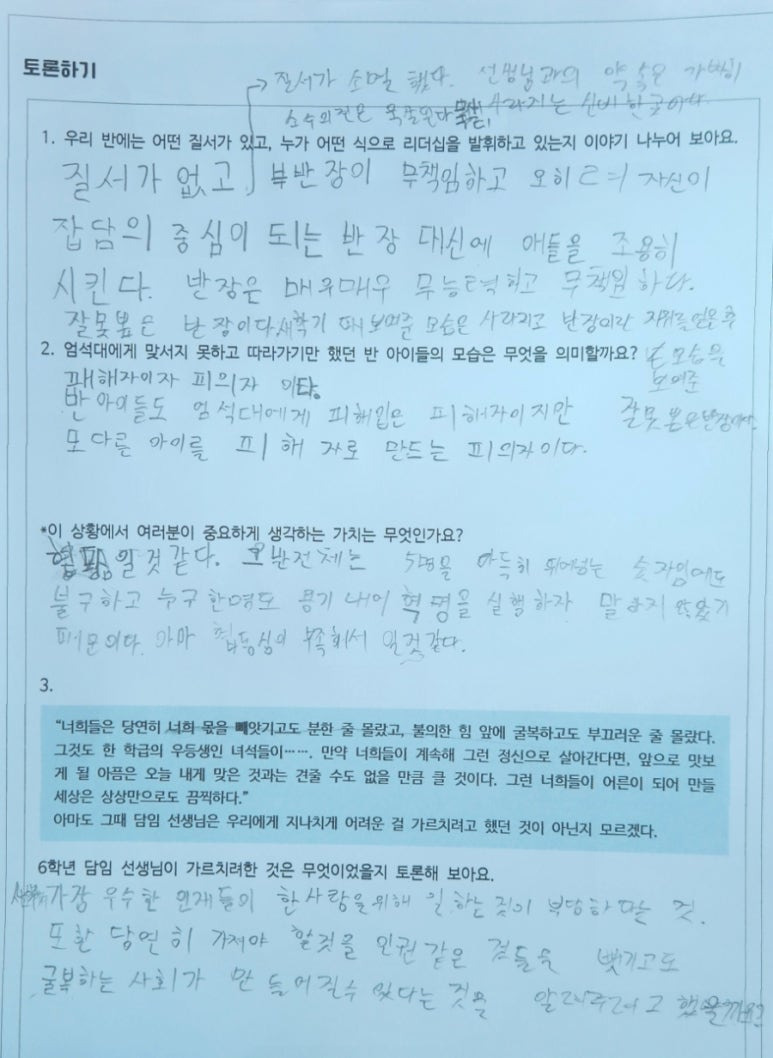 토론하기
질서가 소멸 했다. 선생님과의 약속은 가볍히
사라지는 신비한 곳이다.
1. 우리 반에는 어떤 질서가 있고, 누가 어떤 식으로 리더십을 발휘하고 있는지 이야기 나누어 보아요.
질서가 없고 부반장이 무책임하고 오히려 자신이
잡담의 중심이 되는 반장 대신에 애들을 조용히
시킨다. 반장은 매우매우 무능력하고 무책임하다.
잘못뽑은 반장이다. 새학기 때 보여준 모습은 사라지고 반장이란 지위를 얻은 후
2. 엄석대에게 맞서지 못하고 따라가기만 했던 반 아이들의 모습은 무엇을 의미할까요? 본모습을
피해자이자 피의자 이다. 보여준
반 아이들도 엄석대에게 피해입은 피해자이지만 잘못 뽑은 반장이다.
또다른 아이를 피해 자로 만드는 피의자이다.
*이 상황에서 여러분이 중요하게 생각하는 가치는 무엇인가요?
협동일것 같다. 반전체는 5명을 아득히 뛰어넘는 숫자임에도
불구하고 누구 한명도 용기 내어 혁명을 실행하자 말하지 않았기
때문이다. 아마 협동심이 부족해서 일것같다.
3.
"너희들은 당연히 너희 몫을 빼앗기고도 분한 줄 몰랐고, 불의한 힘 앞에 굴복하고도 부끄러운 줄 몰랐다.
그것도 한 학급의 우등생인 녀석들이……. 만약 너희들이 계속해 그런 정신으로 살아간다면, 앞으로 맛보
게 될 아픔은 오늘 내게 맞은 것과는 견줄 수도 없을 만큼 클 것이다. 그런 너희들이 어른이 되어 만들
세상은 상상만으로도 끔찍하다."
아마도 그때 담임 선생님은 우리에게 지나치게 어려운 걸 가르치려고 했던 것이 아닌지 모르겠다.
6학년 담임 선생님이 가르치려한 것은 무엇이었을지 토론해 보아요.
가장 우수한 인재들의 한사람을위해 일 하는 것이 부당하다는 것.
또한 당연히 가져야 할것을 인권 같은 것들을 뺏기고도
굴복하는 사회가 만들어질수 있다는 것을 알려주려고 했을까요?